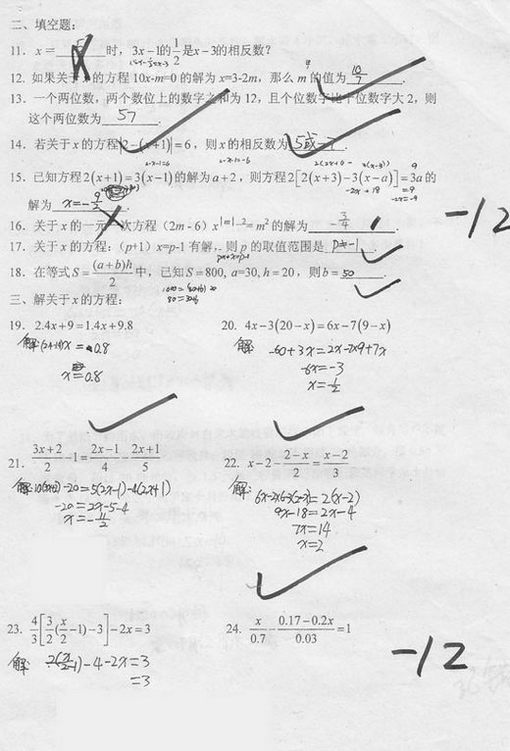 二、填空题：
11．x＝____时，3x－1的1/2是x－3的相反数？
12．如果关于x的方程10x-m=0的解为x=3-2m，那么m的值为 10/7 ．
13．一个两位数，两个数位上的数字之和为12，且个位数字比十位数字大2，则
这个两位数为 57 ．
14．若关于x的方程|2－(x+1)|＝6，则x的相反数为 5或-7 ．
15．已知方程2(x+1)＝3(x－1)的解为a+2，则方程2[2(x+3)－3(x－a)]＝3a的
解为 x=-9/2 ．
16．关于x的一元一次方程（2m－6）x^|m|－2＝m²的解为 -3/4 ．
-12
17．关于x的方程：（p+1）x=p-1有解，则p的取值范围是 p≠-1
18．在等式S＝(a+b)h/2中，已知S＝800, a=30, h＝20，则b＝ 50 ．
三、解关于x的方程：
19．2.4x+9＝1.4x+9.8
20．4x－3(20－x)＝6x－7(9－x)
解: x = 0.8
解 -60+3x=2x-7x9+7x
x=0.8
-6x=-3
x=1/2
21．(3x+2)/2－1＝(2x－1)/4－(2x+1)/5
22．x－2－(2－x)/2＝(x－2)/3
解:10(3x+2)-20=5(2x-1)-4(2x+1)
解: 6x-2x6-3(2-x)=2(x-2)
-20=2x-5-4
9x-18=2x-4
x=-11/2
7x=14
x=2
23．4/3[3/2(x/2－1)－3]－2x＝3
24．x/0.7－(0.17－0.2x)/0.03＝1
-12
解: 2(x/2-1)-4-2x=3
=3